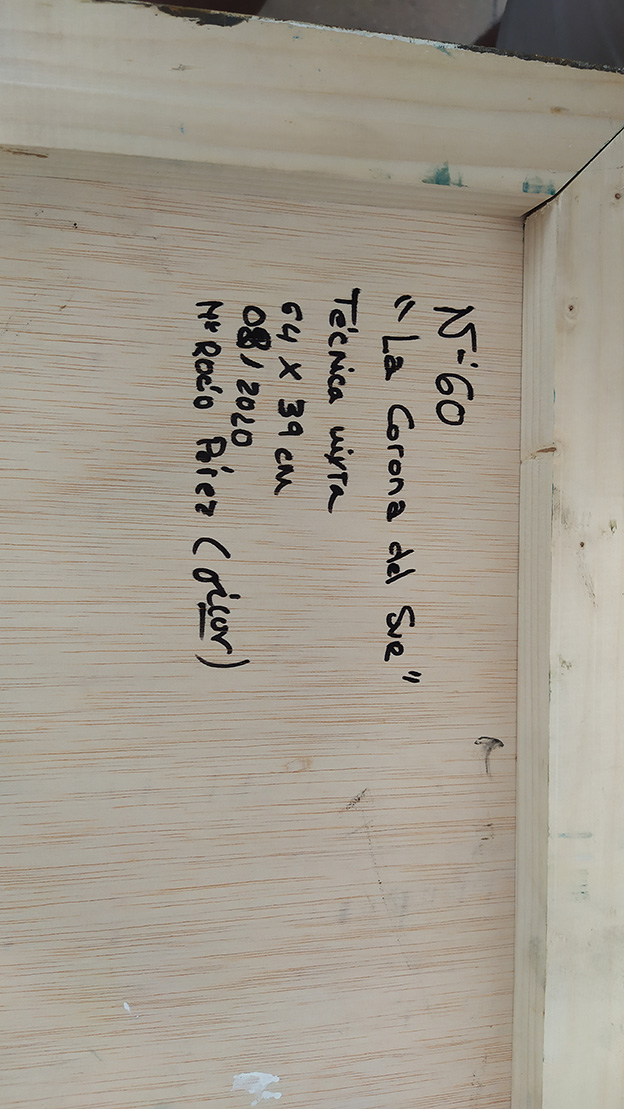 Nº 60
"La Corona del Sur"
Técnica mixta
64 x 39 cm
08/2020
Mª Rocío Pérez (